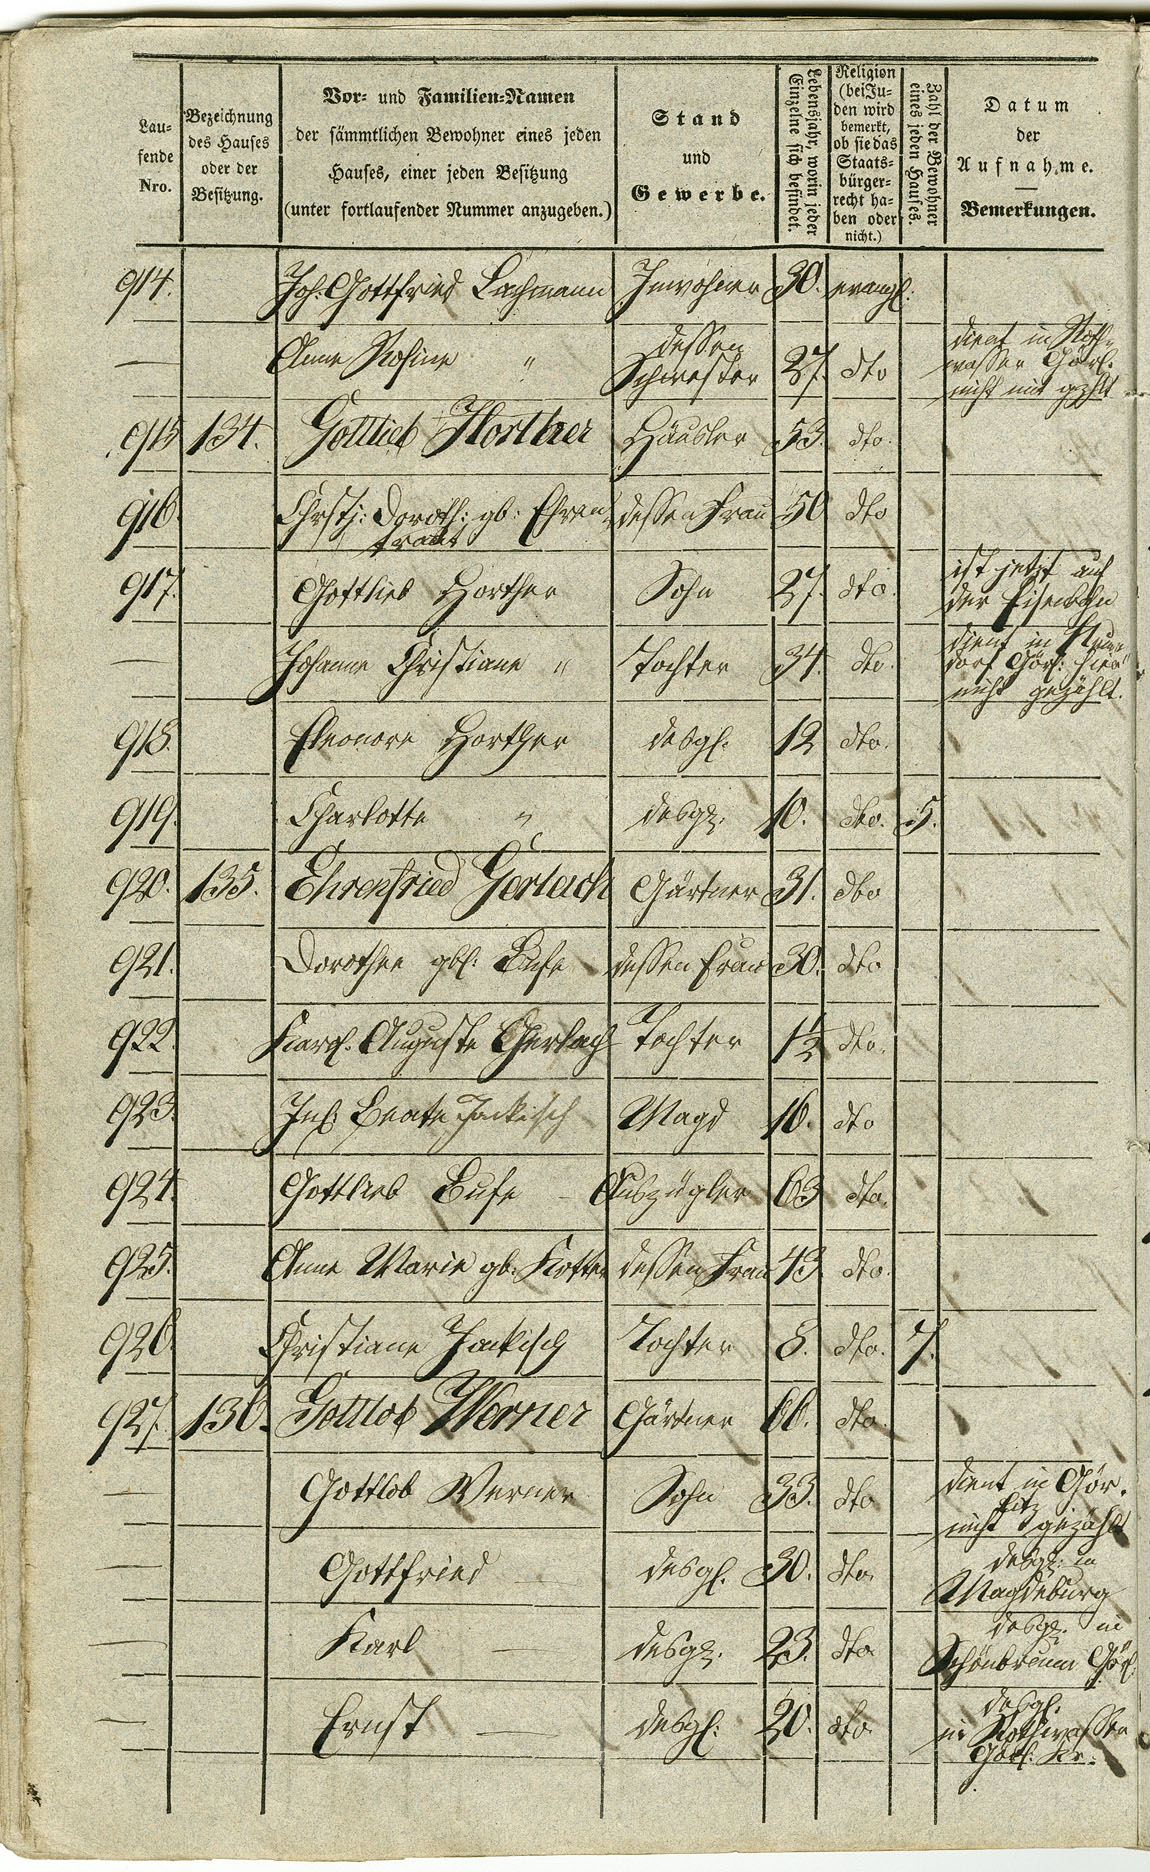 Lau-
fende
Nro.
Bezeichnung
des Hauses
oder der
Besitzung.
Vor- und Familien-Namen
der sämmtlichen Bewohner eines jeden
Hauses, einer jeden Besitzung
(unter fortlaufender Nummer anzugeben.)
Stand
und
Gewerbe.
Lebensjahr, worin jeder
Einzelne sich befindet.
Religion
(bei Ju-
den wird
bemerkt,
ob sie das
Staats-
bürger-
recht ha-
ben oder
nicht.)
Zahl der Bewohner
eines jeden Hauses.
Datum
der
Aufnahme.
Bemerkungen.
914. Joh. Gottfried Lachmann Inwohner 30. evangl:
— Anne Rosine " dessen Schwester 27. dto dient in Roth-
wasser Görl:
nicht mit gezhlt
915 134. Gottlieb Horther Häusler 53. dto.
916. Chrstj: Doroth: gb: Ehren- dessen Frau 50 dto
traut
917. Gottlieb Horther Sohn 27. dto. ist jetzt auf
der Eisenbahn
— Johanne Christiane " Tochter 34. dto. dient in
dorf Görl: hier
nicht gezählt.
918. Eleonore Horther desgl. 12 dto.
919. Charlotte " desgl. 10. dto. 5.
920. 135. Ehrenfried Gerlach Gärtner 31. dto
921. Dorothee gbl: Bufe dessen Frau 30. dto
922. Karol. Auguste Gerlach Tochter 1½ dto.
923. Joh: Beate Jackisch Magd 16. dto
924. Gottlieb Bufe Auszügler 63 dto.
925. Anne Marie gb: dessen Frau 43. dto.
926. Christiane Jackisch Tochter 8. dto. 7.
927. 136. Gottlob Werner Gärtner 66. dto.
— Gottlob Werner Sohn 33. dto dient in Gör-
litz
nicht gezählt
— Gottfried — desgl. 30. dto. desgl. in
Magdeburg
— Karl — desgl. 23. dto desgl. in
Schönbrunn Görl:
— Ernst — desgl: 20. dto desgl.
in Rothwasser
Görl: Kr.